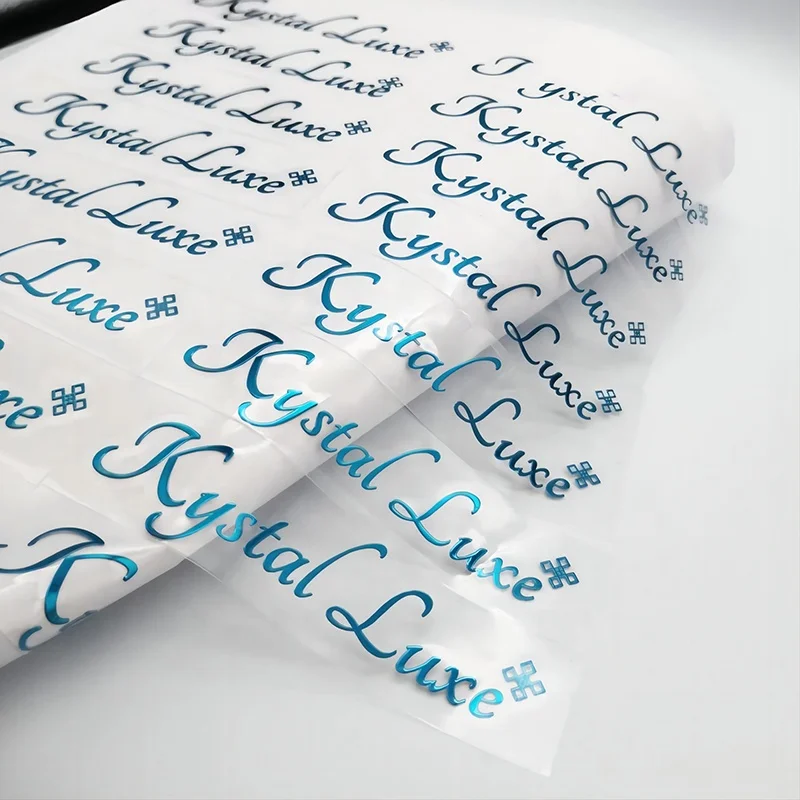 Kystal Luxe
Kystal Luxe
Kystal Luxe
Kystal Luxe
ystal Luxe
Luxe
xe
K
ystal Luxe
Kystal Luxe
Kystal Luxe
Kystal Luxe
Kystal Luxe
Kystal Luxe
Kystal Luxe